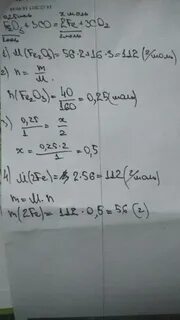 0,25моль x моль
Fe₂O₃ + 3CO = 2Fe + 3CO₂
1моль 2моль
1) M(Fe₂O₃) = 56·2 + 16·3 = 112 (г/моль)
2) n = m/M
n(Fe₂O₃) = 40/160 = 0,25 (моль)
3) 0,25/1 = x/2
x = 0,25·2/1 = 0,5
4) M(2Fe) = 2·56 = 112 (г/моль)
m = M·n
m(2Fe) = 112·0,5 = 56 (г)